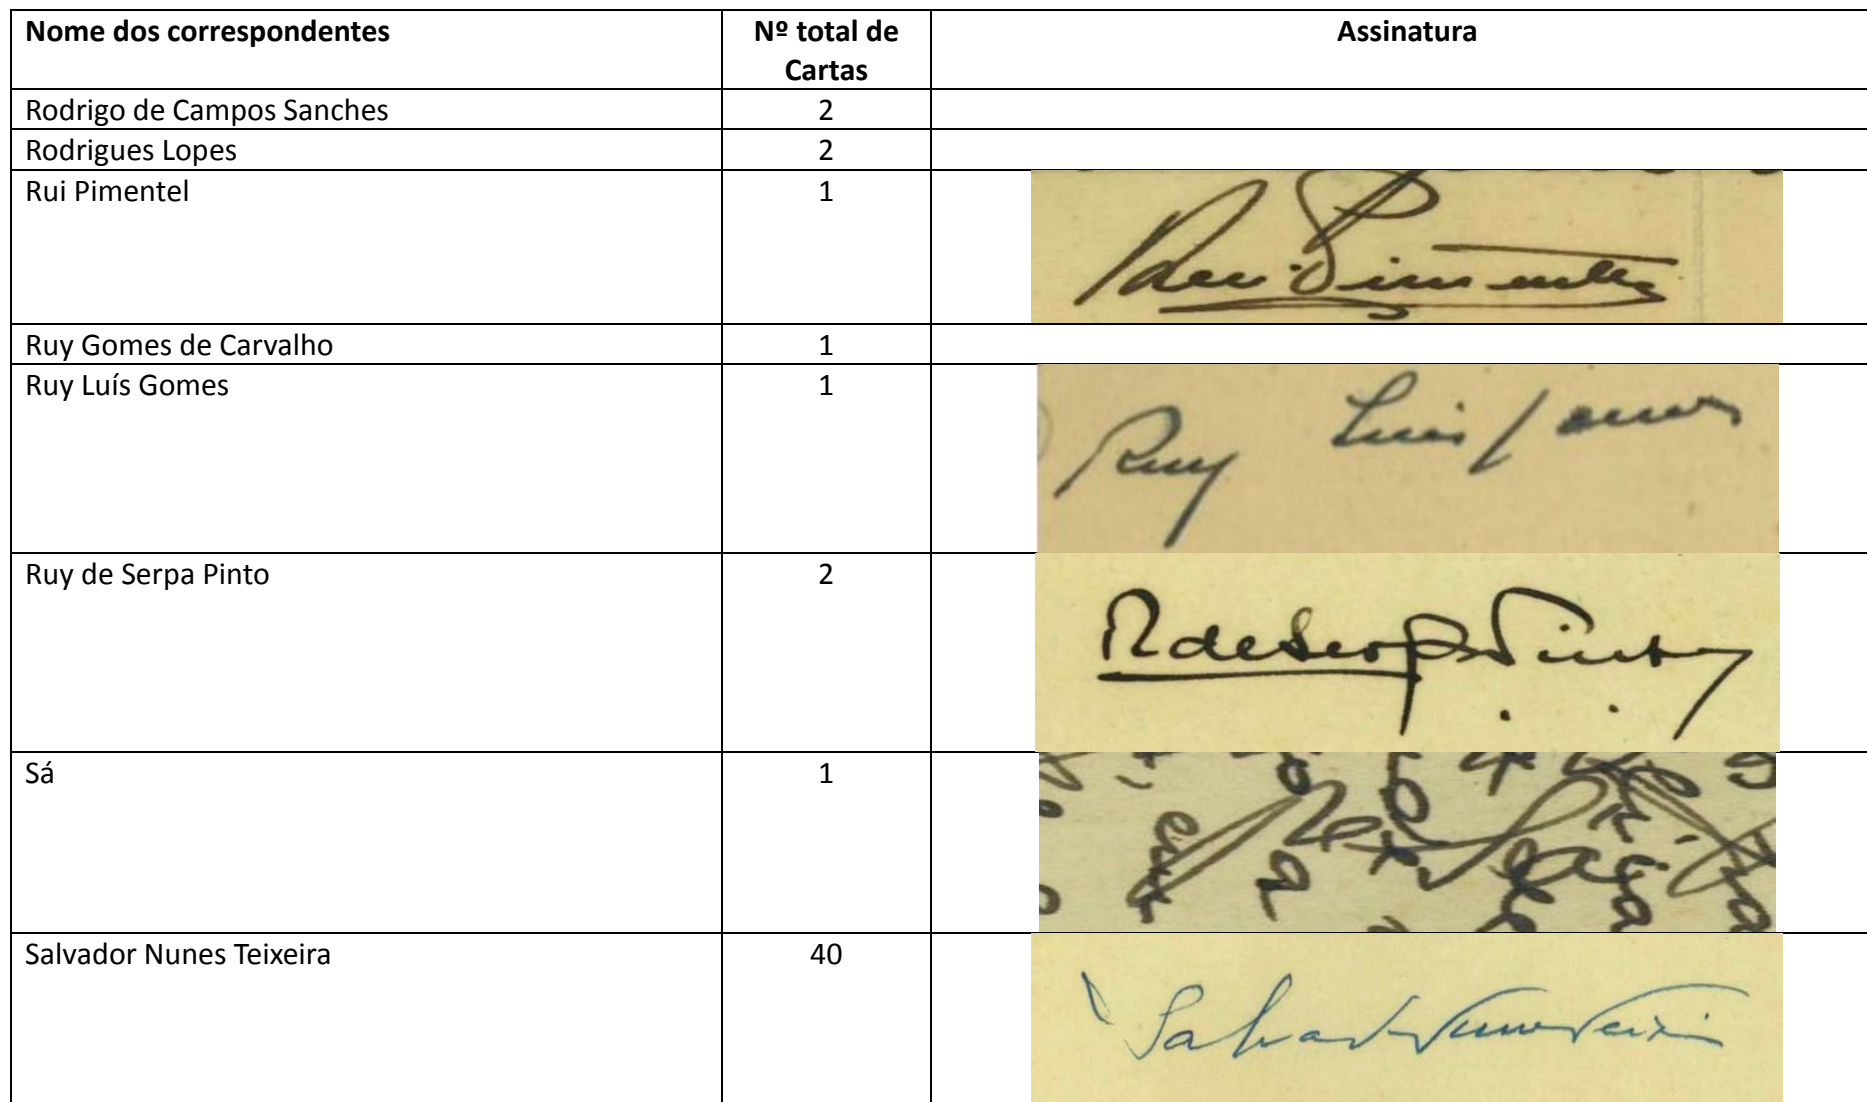 Nome dos correspondentes
Nº total de
Cartas
Assinatura
Rodrigo de Campos Sanches
2
Rodrigues Lopes
2
Rui Pimentel
1
Rui Pimentel
Ruy Gomes de Carvalho
1
Ruy Luís Gomes
1
Ruy Luis Gomes
Ruy de Serpa Pinto
2
R de Serpa Pinto
Sá
1
Salvador Nunes Teixeira
40
Salvador Nunes Teixeira